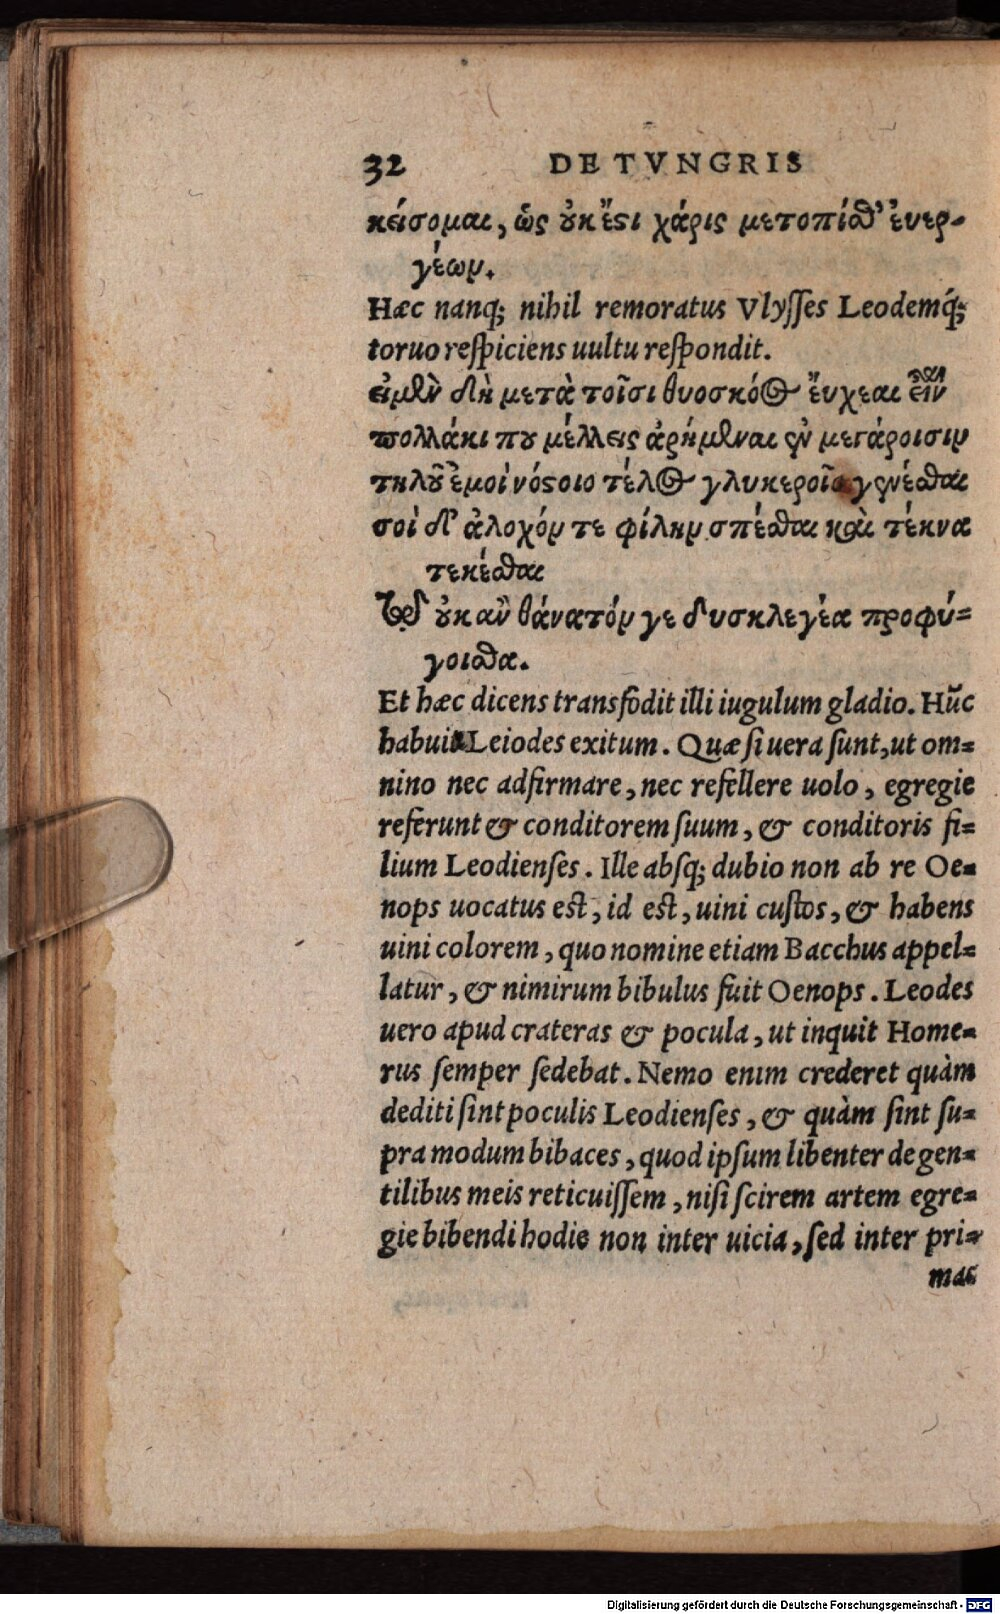 32 DE TVNGRIS
κείσομαι, ὡς ȣκ ἔϛι χάρις μετοπίσθ' ἐυερ-
γέωμ.
Hæc nanq; nihil remoratus Vlyſſes Leodemq́;
toruo reſpiciens uultu reſpondit.
εἰ μὲν δὴ μετὰ τοῖσι θυοσκό⊙ ἔυχεαι εἶναι
πολλάκι πȣ μέλλεις ἀρήμεναι ἐν μεγάροισιν
τηλȣ͂ ἐμοὶ νόϛοιο τέλ⊙ γλυκεροῖο γενέσθαι
σοὶ δ' ἀλοχόν τε φίλην σπέσθαι καὶ τέκνα
τεκέσθαι
Τῷ ȣκ ἂν θάνατόν γε δυσκλεγέα προφύ=
γοισθα.
Et hæc dicens transfōdit illi iugulum gladio. Hūc
habuit Leiodes exitum. Quæ ſi uera ſunt, ut om=
nino nec adfirmare, nec refellere uolo, egregie
referunt & conditorem ſuum, & conditoris fi=
lium Leodienſes. Ille abſq; dubio non ab re Oe=
nops uocatus eſt, id eſt, uini cuſtos, & habens
uini colorem, quo nomine etiam Bacchus appel=
latur, & nimirum bibulus fuit Oenops. Leodes
uero apud crateras & pocula, ut inquit Home=
rus ſemper ſedebat. Nemo enim crederet quàm
dediti ſint poculis Leodienſes, & quàm ſint ſu=
pra modum bibaces, quod ipſum libenter de gen=
tilibus meis reticuiſſem, niſi ſcirem artem egre=
gie bibendi hodie non inter uicia, ſed inter pri=
mas
Digitalisierung gefördert durch die Deutsche Forschungsgemeinschaft - DFG